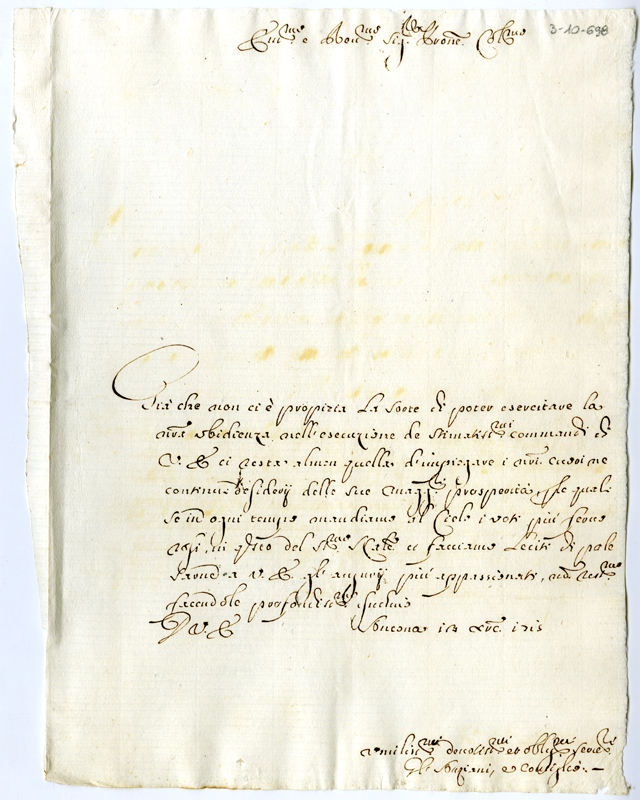 Em.mo e Rev.mo Sig.r Prone Col.mo
3-10-698
Già che non ci è propizia la sorte di poter esercitare la
nrã obidienza nell'esecuzione de stimatis.mi commandi di
V. E. ci resta almen quella d'impiegare i nri cuori ne
continui desiderij delle sue magg.ri prosperità, per le quali
se in ogni tempo mandiamo al Cielo i voti più ferve
nti, in q.sto del S.mo Natale ci facciamo leciti di pale
sarne a V. E. gli augurij più appassionati,
facendole profondis.mo inchino
D V. E. Ancona
umilis.mi devotis.mi et oblig.mi serv.ri
Gli Anziani, e Consiglio